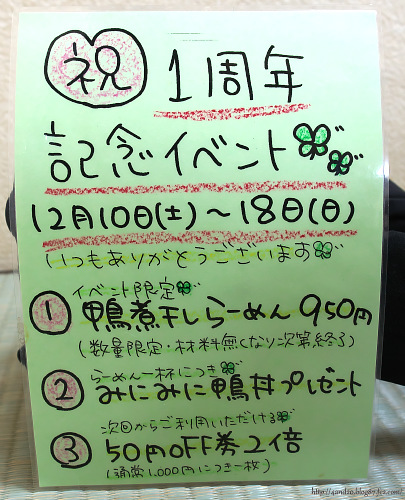 祝 1周年
記念イベント
12月10日(土)～18日(日)
いつもありがとうございます
イベント限定
① 鴨煮干しらーめん 950円
(数量限定・材料無くなり次第終了)
らーめん一杯につき
② みにみに鴨丼プレゼント
次回からご利用いただける
③ 50円OFF券2倍
(通常1,000円につき一枚)